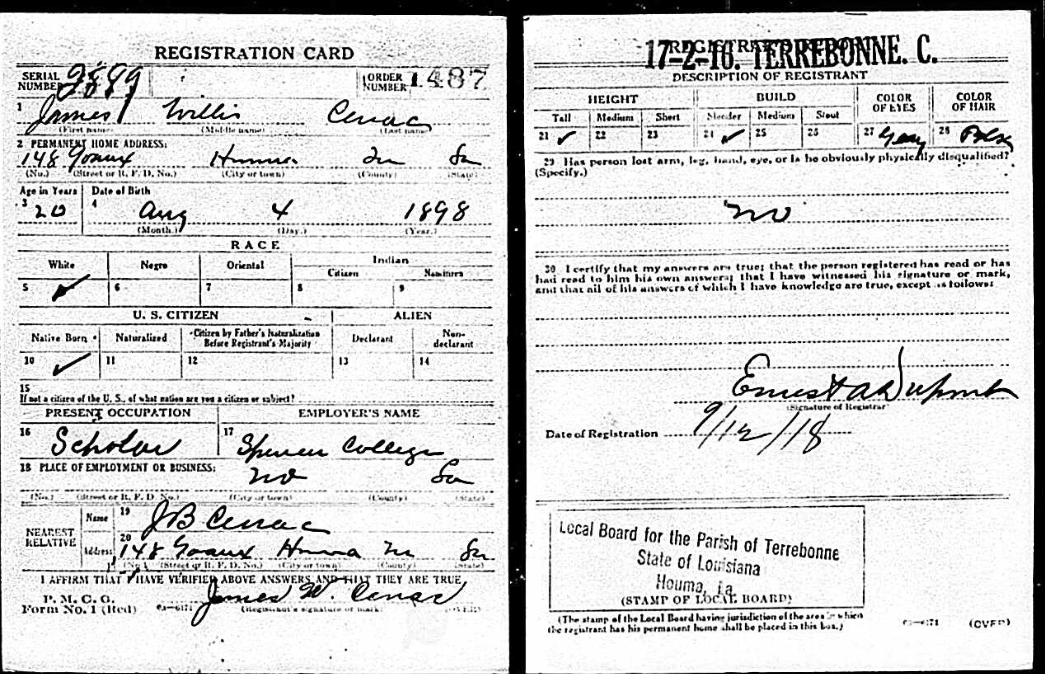 REGISTRATION CARD
SERIAL NUMBER 2899 ORDER NUMBER 1487
1 James Willis Cenac
(First name) (Middle name) (Last name)
2 PERMANENT HOME ADDRESS:
148 Goaux Houma La
(No.) (Street or R. F. D. No.) (City or town) (County) (State)
Age in Years Date of Birth
3 20 4 Aug 4 1898
(Month.) (Day.) (Year.)
RACE
White Negro Oriental Indian
Citizen Noncitizen
5 6 7 8 9
U. S. CITIZEN ALIEN
Native Born Naturalized Citizen by Father's Naturalization Before Registrant's Majority Declarant Non-declarant
10 11 12 13 14
15
If not a citizen of the U. S., of what nation are you a citizen or subject?
PRESENT OCCUPATION EMPLOYER'S NAME
16 Scholar 17 Spencer College
18 PLACE OF EMPLOYMENT OR BUSINESS:
NO La
(No.) (Street or R. F. D. No.) (City or town) (County) (State)
NEAREST RELATIVE
Name 19 J B Cenac
Address 20 148 Goaux Houma La
(No.) (Street or R. F. D. No.) (City or town) (County) (State)
I AFFIRM THAT I HAVE VERIFIED ABOVE ANSWERS AND THAT THEY ARE TRUE
P. M. G. O.
Form No. 1 (Red) 03-6171 James W. Cenac
(Registrant's signature or mark) (OVER)
17-2-16. TERREBONNE. C.
REGISTRAR'S REPORT
DESCRIPTION OF REGISTRANT
HEIGHT BUILD COLOR OF EYES COLOR OF HAIR
Tall Medium Short Slender Medium Stout
21 22 23 24 25 26 27 Gray 28
29 Has person lost arm, leg, hand, eye, or is he obviously physically disqualified?
(Specify.)
no
30 I certify that my answers are true; that the person registered has read or has
had read to him his own answers; that I have witnessed his signature or mark,
and that all of his answers of which I have knowledge are true, except as follows:
Ernest A Dupont
(Signature of Registrar)
Date of Registration 9/12/18
Local Board for the Parish of Terrebonne
State of Louisiana
Houma, La
(STAMP OF LOCAL BOARD)
(The stamp of the Local Board having jurisdiction of the area in which
the registrant has his permanent home shall be placed in this box.)
03-6171 (OVER)